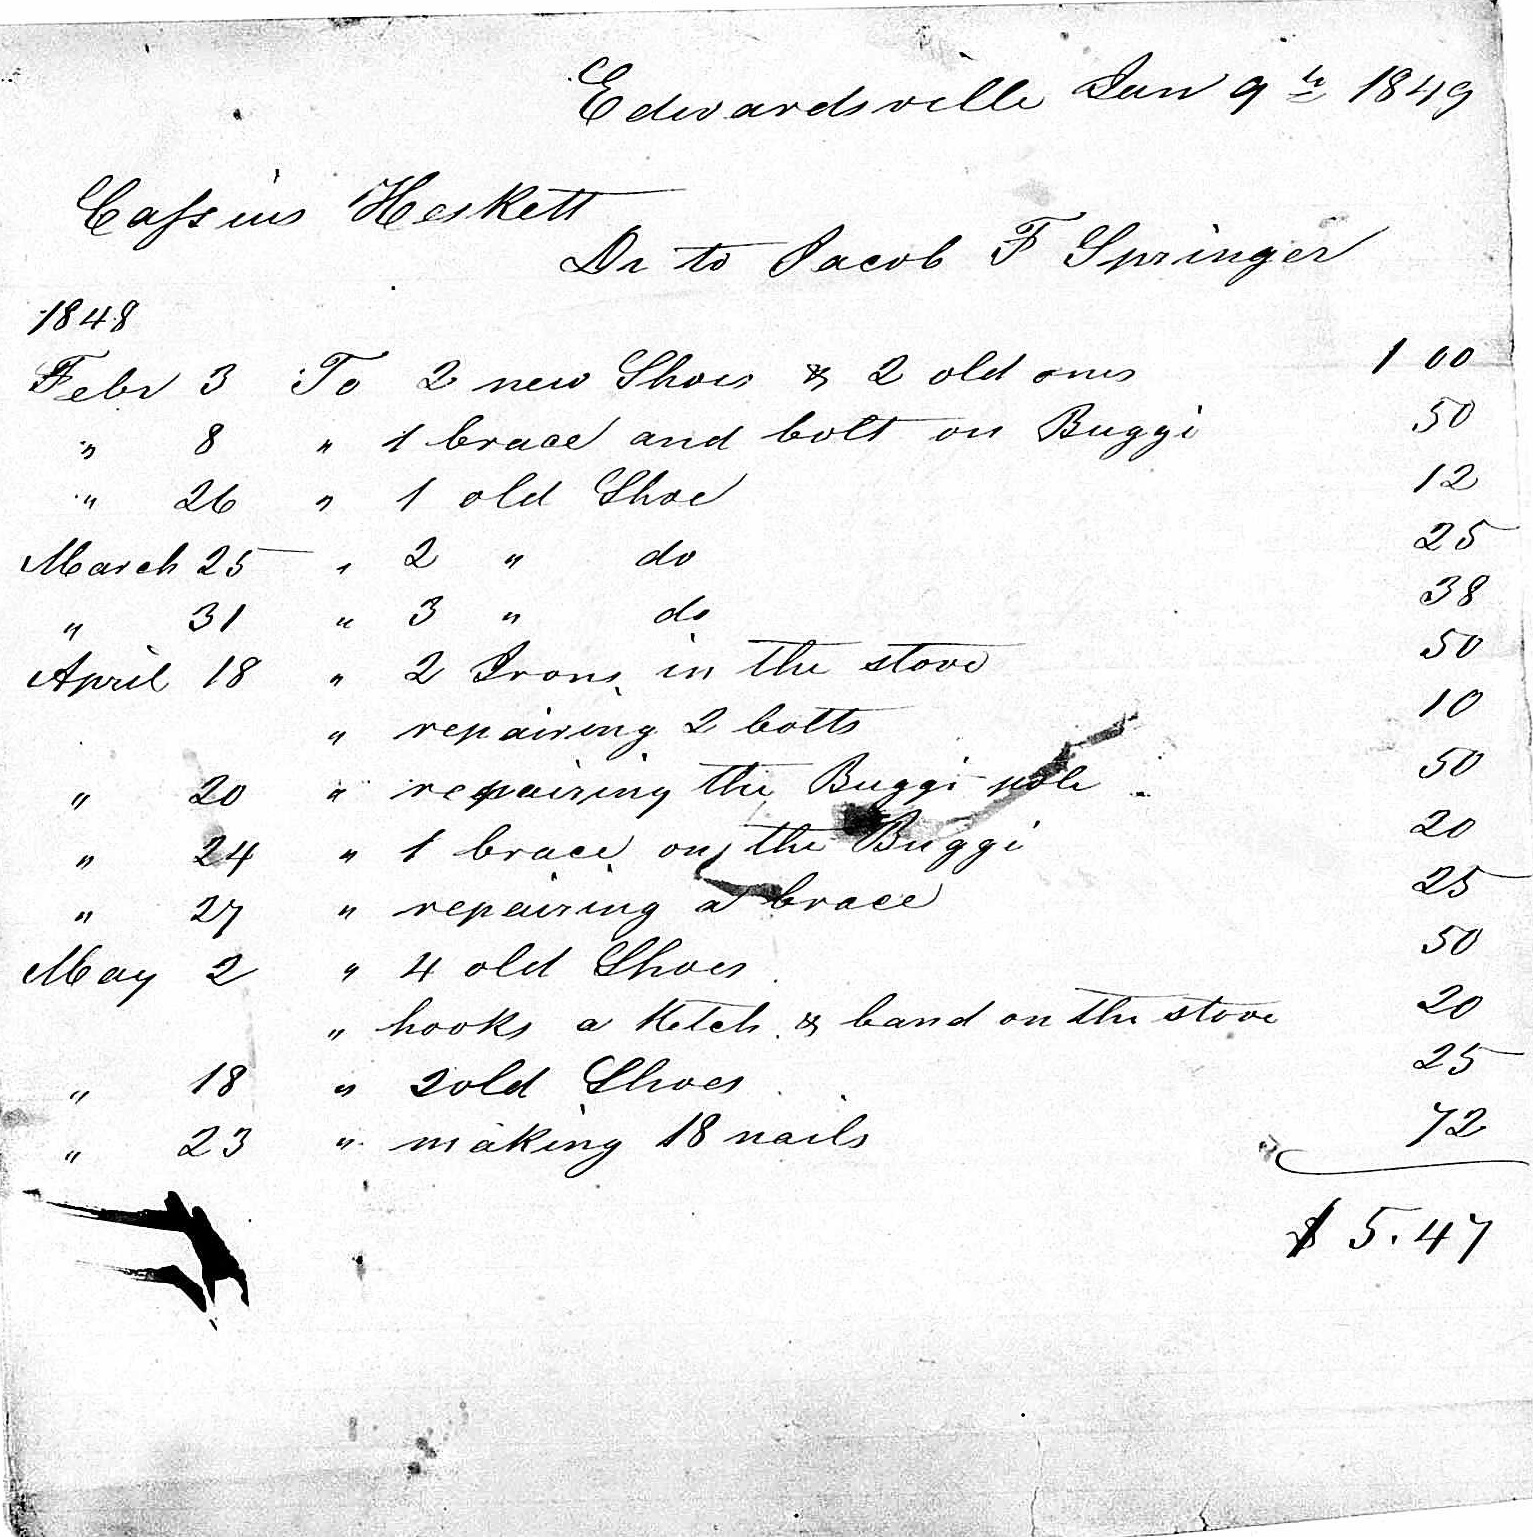 Edwardsville Jan 9th 1849
Cassius Heskett
Dr to Jacob F Springer
1848
Febr 3 To 2 new Shoes & 2 old ones 1 00
" 8 " 1 brace and bolt on Buggi 50
" 26 " 1 old Shoe 12
March 25 " 2 " do 25
" 31 " 3 " do 38
April 18 " 2 Irons in the stove 50
" repairing 2 bolts 10
" 20 " repairing the Buggi pole 50
" 24 " 1 brace on the Buggi 20
" 27 " repairing a brace 25
May 2 " 4 old Shoes 50
" hooks a Ketch & band on the stove 20
" 18 " 2 old Shoes 25
" 23 " making 18 nails 72
$ 5.47